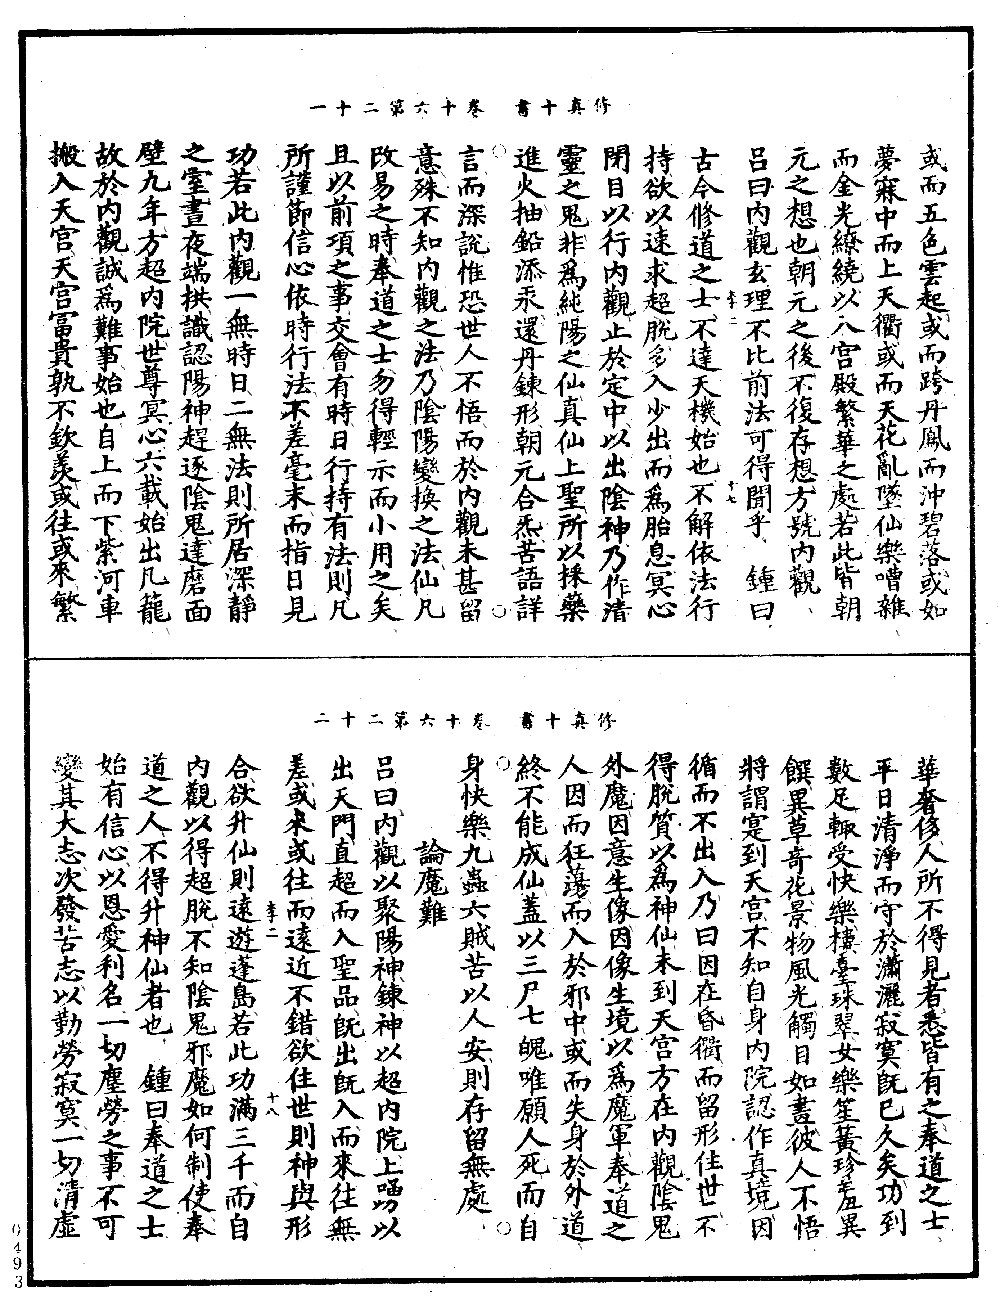 修真十書　卷十六第二十一
或而五色雲起或而跨丹鳳而沖碧落或如
夢寐中而上天衢或而天花亂墜仙樂嘈雜
而金光繚繞以入宮殿繁華之處若此皆朝
元之想也朝元之後不復存想方號內觀
呂曰內觀玄理不比前法可得聞乎　鍾曰
李二　十七
古今修道之士不達天機始也不解依法行
持欲以速求超脫多入少出而爲胎息冥心
閉目以行內觀止於定中以出陰神乃作清
靈之鬼非爲純陽之仙真仙上聖所以採藥
進火抽鉛添汞還丹鍊形朝元合炁苦語詳
言而深說惟恐世人不悟而於內觀未甚留
意殊不知內觀之法乃陰陽變換之法仙凡
改易之時奉道之士勿得輕示而小用之矣
且以前項之事交會有時日行持有法則凡
所謹節信心依時行法不差毫末而指日見
功若此內觀一無時日二無法則所居深靜
之室晝夜端拱識認陽神趕逐陰鬼達磨面
壁九年方超內院世尊冥心六載始出凡籠
故於內觀誠爲難事始也自上而下紫河車
搬入天宮天宮富貴孰不欽羨或往或來繁
修真十書　卷十六第二十二
華奢侈人所不得見者悉皆有之奉道之士
平日清淨而守於瀟灑寂寞旣已久矣功到
數足輒受快樂樓臺珠翠女樂笙簧珍羞異
饌異草奇花景物風光觸目如晝彼人不悟
將謂寔到天宮不知自身內院認作真境因
循而不出入乃曰因在昏衢而留形住世不
得脫質以爲神仙未到天宮方在內觀陰鬼
外魔因意生像因像生境以爲魔軍奉道之
人因而狂蕩而入於邪中或而失身於外道
終不能成仙蓋以三尸七魄唯願人死而自
身快樂九蟲六賊苦以人安則存留無處
論魔難
呂曰內觀以聚陽神鍊神以超內院上踴以
出天門直超而入聖品旣出旣入而來往無
差或來或往而遠近不錯欲住世則神與形
李二　十八
合欲升仙則遠遊蓬島若此功滿三千而自
內觀以得超脫不知陰鬼邪魔如何制使奉
道之人不得升神仙者也　鍾曰奉道之士
始有信心以恩愛利名一切塵勞之事不可
變其大志次發苦志以勤勞寂寞一切清虛
0493